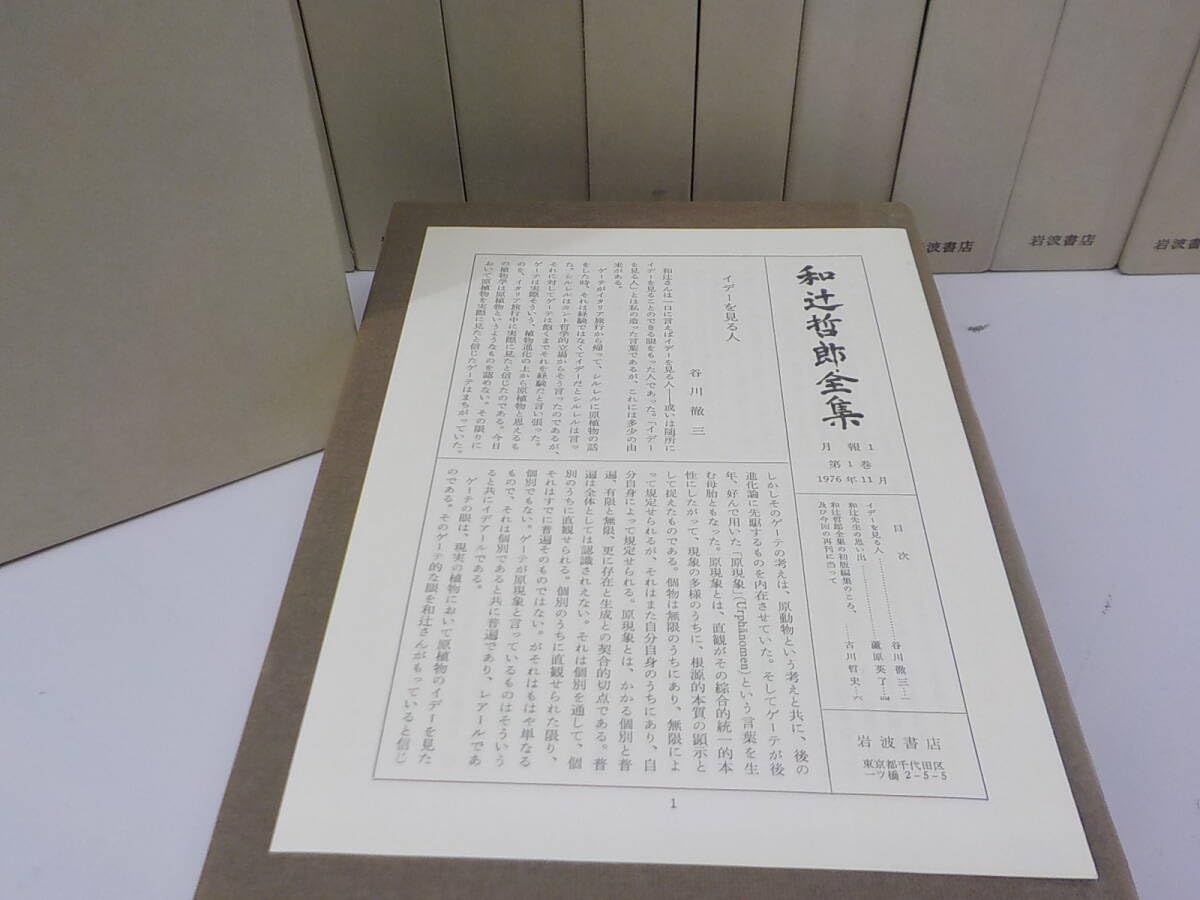 和辻哲郎全集
月報1
第1巻
1976年11月
目次
イデーを見る人……………谷川徹三…一
和辻先生の思い出……………蘆原英了…四
和辻哲郎全集の初版編集のころ、
及び今回の再刊に当って……古川哲史…六
岩波書店
東京都千代田区
一ツ橋2-5-5
イデーを見る人
谷川徹三
和辻さんは一口に言えばイデーを見る人――或いは随所に
イデーを見ることのできる眼をもった人であった。「イデー
を見る人」とは私の造った言葉であるが、これには多少の由
来がある。
ゲーテがイタリア旅行から帰って、シルレルに原植物の話
をした時、それは経験ではなくてイデーだとシルレルは言っ
た。シルレルはカント哲学的立場からそう言ったのであるが、
それに対してゲーテは飽くまでそれを経験だと言い張った。
ゲーテは実際そういう、植物進化の上から原植物と思えるも
のを、イタリア旅行中に実際に見たと信じたのである。今日
の植物学は原植物というようなものを認めない。その限りに
おいて原植物を実際に見たと信じたゲーテはまちがっていた。
しかしそのゲーテの考えは、原動物という考えと共に、後の
進化論に先駆するものを内在させていた。そしてゲーテが後
年、好んで用いた「原現象」(Urphänomen)という言葉を生
む母胎ともなった。原現象とは、直観がその綜合的統一的本
性にしたがって、現象の多様のうちに、根源的本質の顕示と
して捉えたものである。個物は無限のうちにあり、無限によ
って規定せられるが、それはまた自分自身のうちにあり、自
分自身によって規定せられる。原現象とは、かかる個別と普
遍、有限と無限、更に存在と生成との契合的切点である。普
遍は全体としては認識されえない。それは個別を通して、個
別のうちに直観せられる。個別のうちに直観せられた限り、
それはすでに普遍そのものではない。がそれはもはや単なる
個別でもない。ゲーテが原現象と言っているものはそういう
もので、それは個別であると共に普遍であり、レアールであ
ると共にイデアールである。
ゲーテの眼は、現実の植物において原植物のイデーを見た
のである。そのゲーテ的な眼を和辻さんがもっていると信じ
1
岩波書店
岩波書店
岩波書店